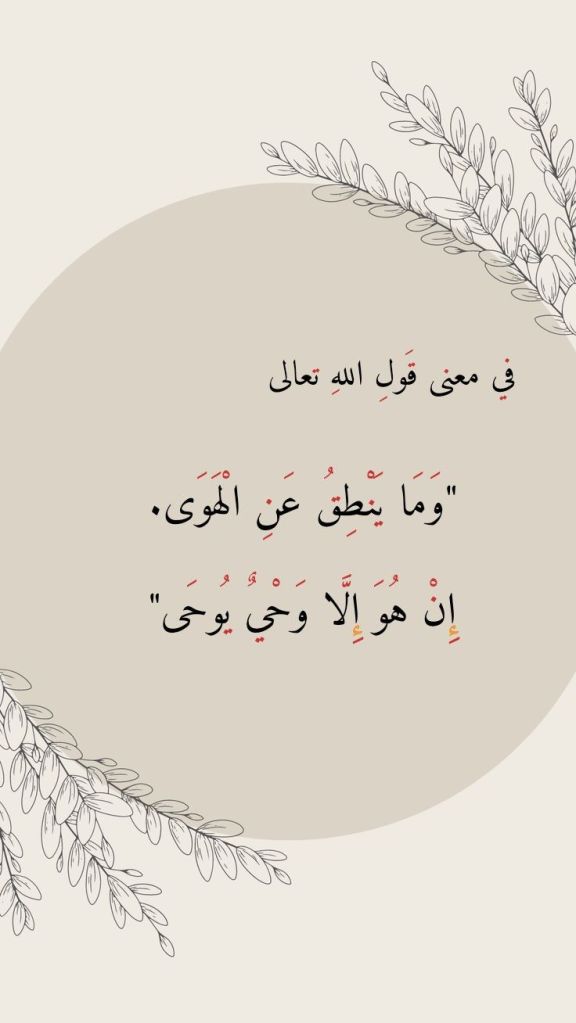 في معنى قَولِ اللهِ تعالى
"وَمَا يَنْطِقُ عَنِ الْهَوَى.
إِنْ هُوَ إِلَّا وَحْيٌ يُوحَى"